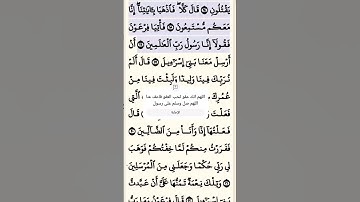 يَقْتُلُونِ ۝ قَالَ كَلَّا ۖ فَاذْهَبَا بِـَٔايَٰتِنَآ ۖ إِنَّا
مَعَكُم مُّسْتَمِعُونَ ۝ فَأْتِيَا فِرْعَوْنَ
فَقُولَآ إِنَّا رَسُولُ رَبِّ ٱلْعَٰلَمِينَ ۝ أَنْ
أَرْسِلْ مَعَنَا بَنِىٓ إِسْرَٰٓءِيلَ ۝ قَالَ أَلَمْ
نُرَبِّكَ فِينَا وَلِيدًا وَلَبِثْتَ فِينَا مِنْ
عُمُرِكَ
اللهم انك عفو تحب العفو فاعف عنا
اللهم صل وسلم على رسول
فَعَلْتَ
قَالَ
فَعَلْتُهَآ إِذًا وَأَنَا۠ مِنَ ٱلضَّآلِّينَ ۝
فَفَرَرْتُ مِنكُمْ لَمَّا خِفْتُكُمْ فَوَهَبَ
لِى رَبِّى حُكْمًا وَجَعَلَنِى مِنَ ٱلْمُرْسَلِينَ
۝ وَتِلْكَ نِعْمَةٌ تَمُنُّهَا عَلَىَّ أَنْ عَبَّدتَّ
بَنِىٓ إِسْرَٰٓءِيلَ ۝ قَالَ فِرْعَوْنُ وَمَا رَبُّ